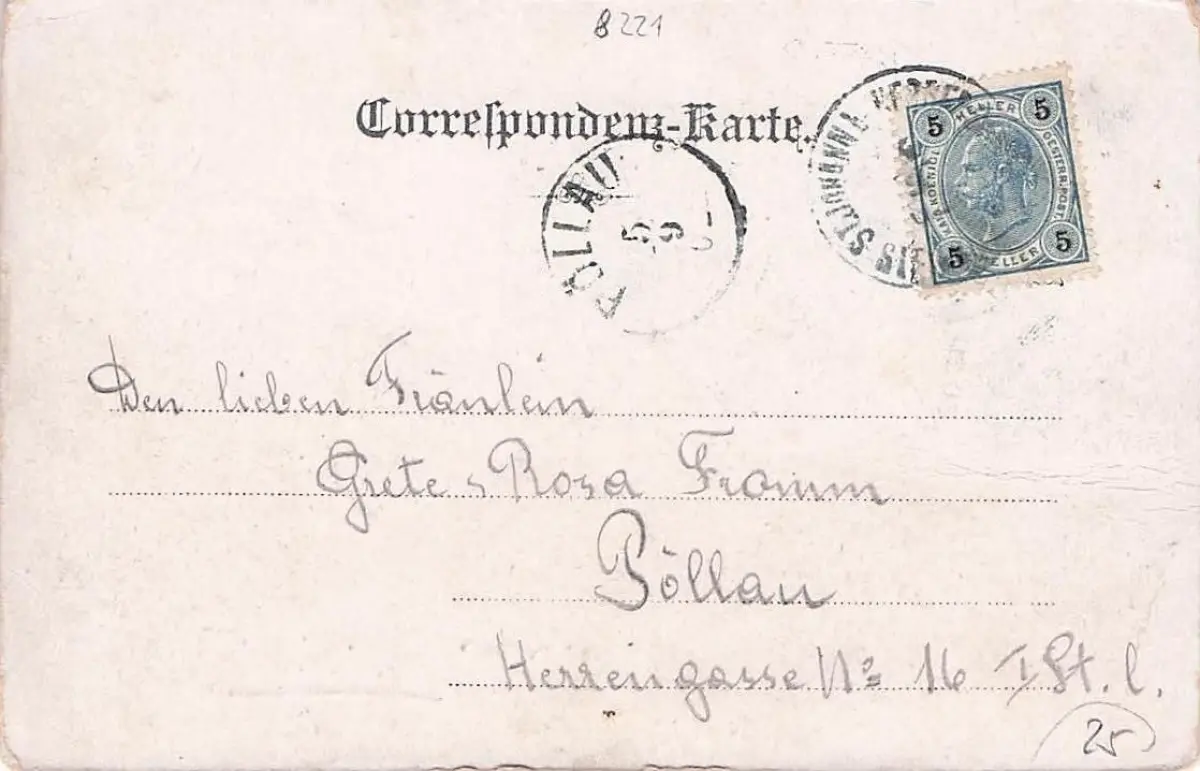 8221
Correspondenz-Karte.
PÖLLAU
5
9
ST. JOHANNA
5 HELLER 5
KAIS. KOENIGL. OESTERR. POST.
5 HELLER 5
Den lieben Fräulein
Grete & Rosa Fromm
Pöllau
Herrengasse No 16 I St. l.
25